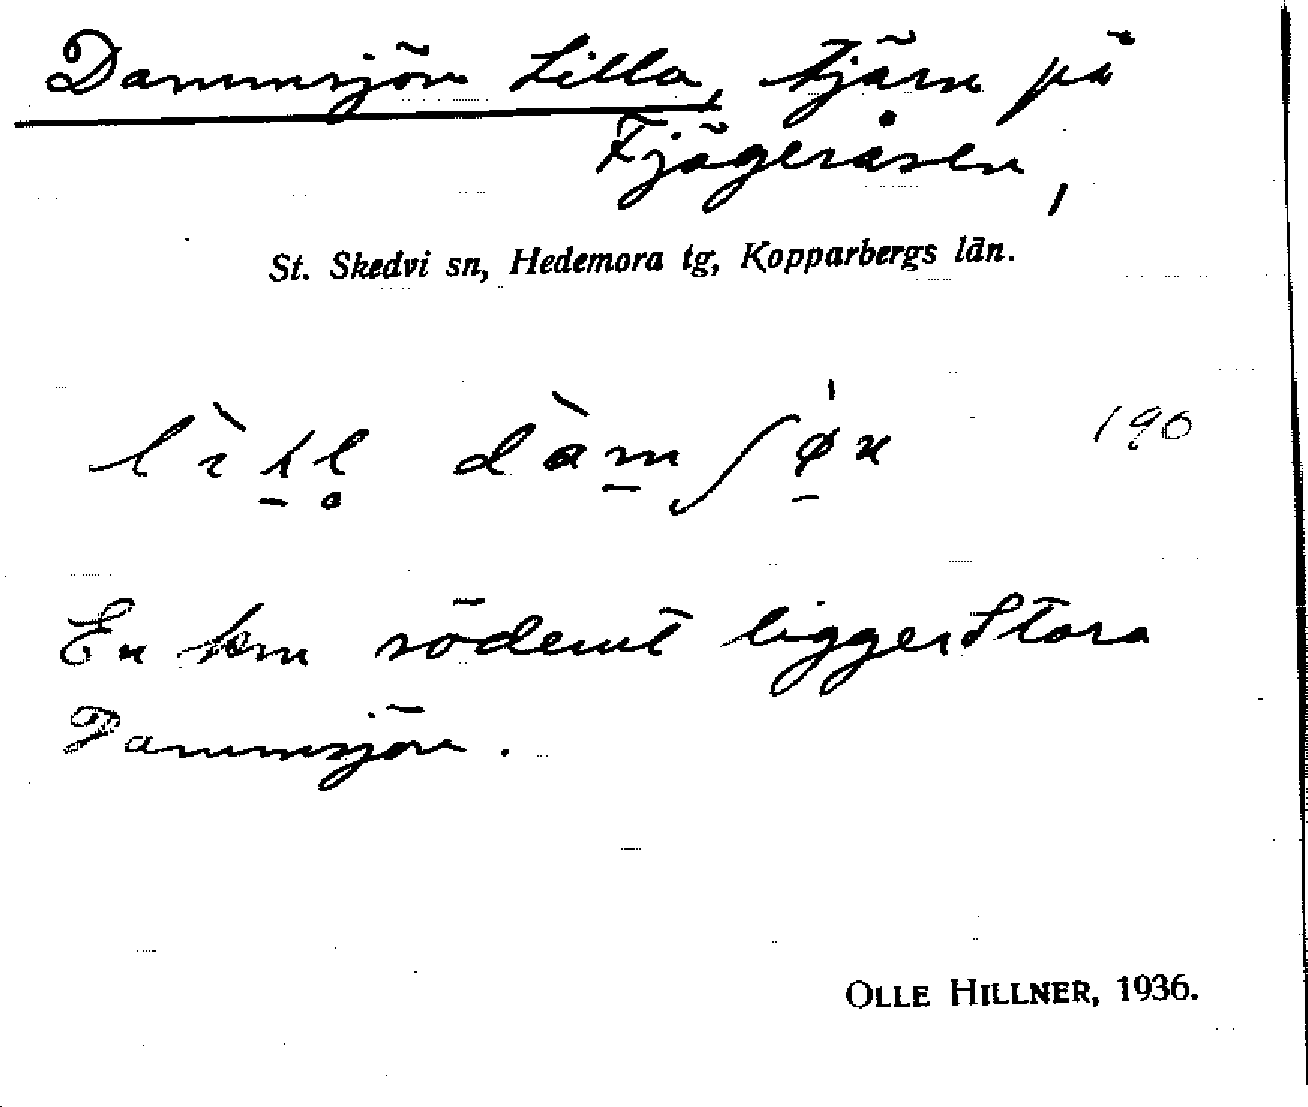 Dammsjön Lilla, tjärn på
Fjägeråsen,
St. Skedvi sn, Hedemora tg, Kopparbergs län.
lìkl̥ dàmʃøn 190
En km söderut ligger Stora
Dammsjön.
OLLE HILLNER, 1936.